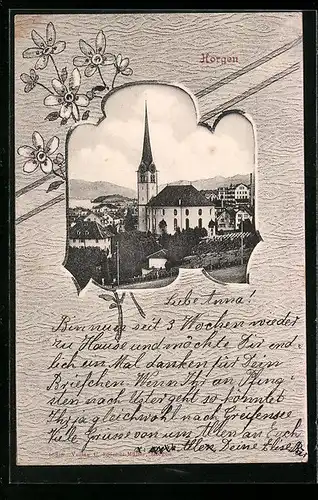 Horgen
Liebe Anna!
Bin nun seit 3 Wochen wieder
zu Hause und möchte Dir end-
lich ein Mal danken für Dein
Briefchen. Wenn Ihr an Pfing-
sten nach Uster geht so kommt
Ihr ja gleichwohl nach Greifensee
Viele Grüsse von uns Allen an Euch
Allen, Deine Elise